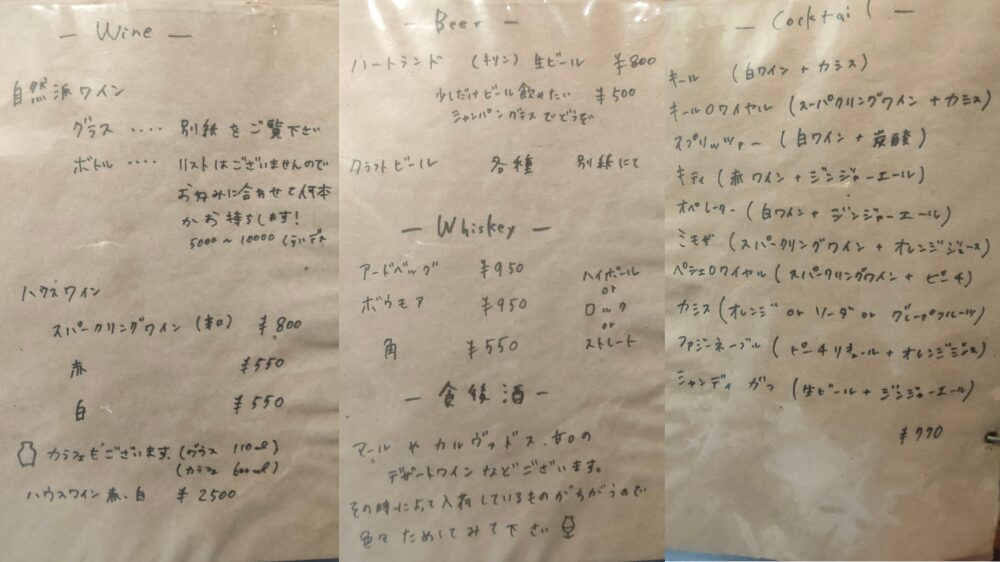 — Wine —
自然派ワイン
グラス ‥‥ 別紙をご覧下さい
ボトル ‥‥ リストはございませんので
お好みに合わせて何本
かお持ちします!
5000〜10000 くらいです
ハウスワイン
スパークリングワイン (辛口) ¥800
赤 ¥550
白 ¥550
カラフェもございます (グラス 110ml)
(カラフェ 600ml)
ハウスワイン赤、白 ¥2500
— Beer —
ハートランド (キリン) 生ビール ¥800
少しだけビール飲みたい ¥500
シャンパングラスでどうぞ
クラフトビール 各種 別紙にて
— Whiskey —
アードベッグ ¥950 ハイボール
or
ボウモア ¥950 ロック
or
角 ¥550 ストレート
— 食後酒 —
マールやカルヴァドス、甘口の
デザートワインなどございます。
その時によって入荷しているものがちがうので
色々ためしてみて下さい
— Cocktail —
キール (白ワイン + カシス)
キールロワイヤル (スーパークリングワイン + カシス)
スプリッツァー (白ワイン + 炭酸)
キティ (赤ワイン + ジンジャーエール)
オペレーター (白ワイン + ジンジャーエール)
ミモザ (スパークリングワイン + オレンジジュース)
ペシェロワイヤル (スパークリングワイン + ピーチ)
カシス (オレンジ or ソーダ or グレープフルーツ)
ファジーネーブル (ピーチリキュール + オレンジジュース)
シャンディ ガフ (生ビール + ジンジャーエール)
¥770